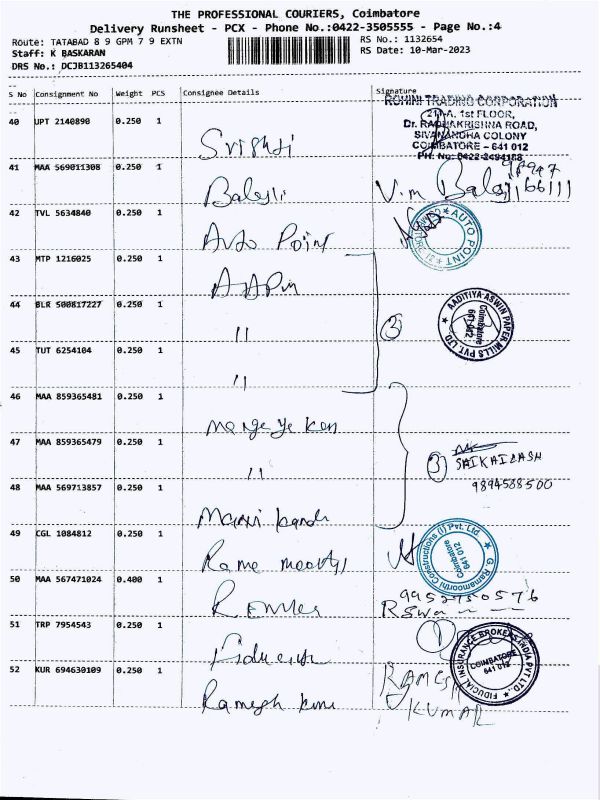 THE PROFESSIONAL COURIERS, Coimbatore
Delivery Runsheet - PCX - Phone No.:0422-3505555 - Page No.:4
Route: TATABAD 8 9 GPM 7 9 EXTN
RS No.: 1132654
Staff: K BASKARAN
RS Date: 10-Mar-2023
DRS No.: DCJB113265404
S No Consignment No Weight PCS Consignee Details Signature
ROHINI TRADING CORPORATION
211-A, 1st FLOOR,
Dr. RADHAKRISHNA ROAD,
SIVANANDHA COLONY
COIMBATORE - 641 012
PH: No: 0422-2494188
40 UPT 2140890 0.250 1
41 MAA 569011308 0.250 1 Balaji V.m Balaji
42 TVL 5634840 0.250 1 Auto Point
AUTO POINT
43 MTP 1216025 0.250 1 AAPM
44 BLR 500817227 0.250 1 "
3
AADITIYA ASWIN PAPER MILLS PVT. LTD.
Coimbatore
641 012
45 TUT 6254104 0.250 1 "
46 MAA 859365481 0.250 1
47 MAA 859365479 0.250 1 "
3 SAIKAILASH
9894588500
48 MAA 569713857 0.250 1
49 CGL 1084812 0.250 1 Rama moorthy
G. Ramamoorthi Constructions (I) Pvt. Ltd.
Coimbatore
641 012
50 MAA 567471024 0.400 1
9952750576
51 TRP 7954543 0.250 1
FIDUCIAL INSURANCE BROKERS INDIA PVT LTD.,
COIMBATORE
641 012
52 KUR 694630109 0.250 1 Ramesh
RAMESH
KUMAR